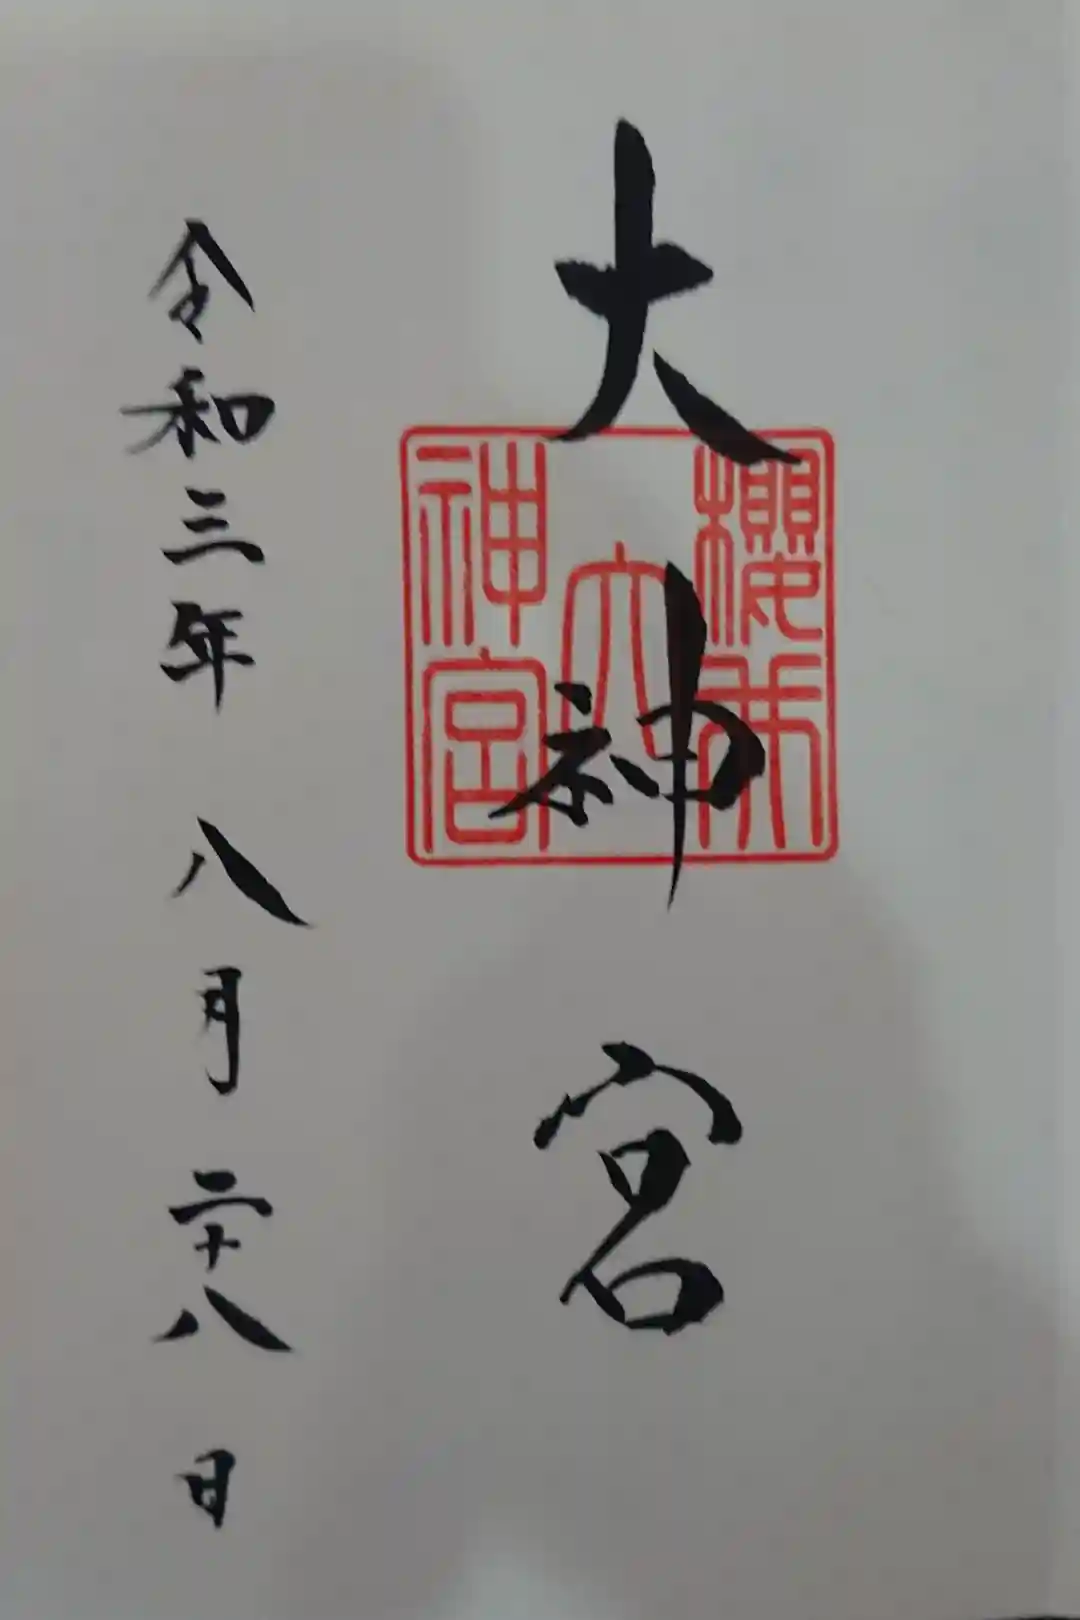 大神宮
櫻木
大
神宮
令和三年 八月二十八日